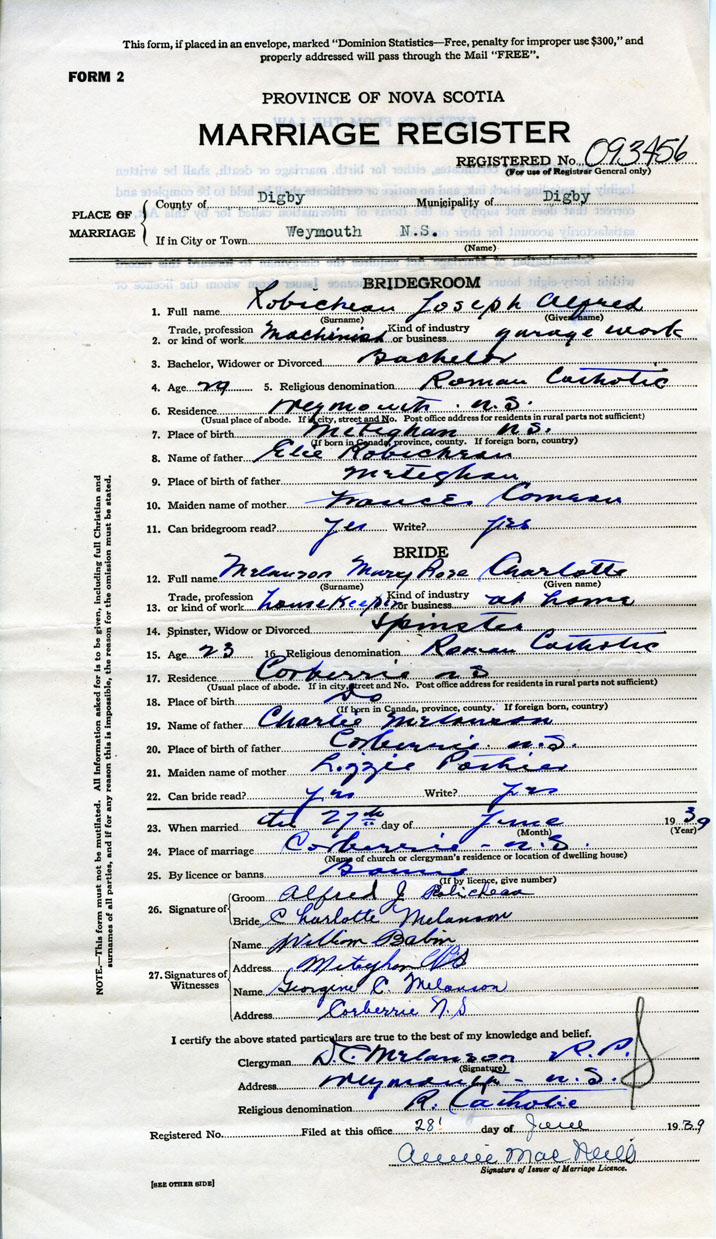 This form, if placed in an envelope, marked “Dominion Statistics—Free, penalty for improper use $300,” and
properly addressed will pass through the Mail “FREE”.
FORM 2
PROVINCE OF NOVA SCOTIA
MARRIAGE REGISTER
REGISTERED No. 093456
(For use of Registrar General only)
PLACE OF MARRIAGE
County of Digby Municipality of Digby
If in City or Town Weymouth N.S.
(Name)
BRIDEGROOM
1. Full name Robicheau Joseph Alfred
(Surname) (Given name)
2. Trade, profession or kind of work Machinist Kind of industry or business garage work
3. Bachelor, Widower or Divorced Bachelor
4. Age 29 5. Religious denomination Roman Catholic
6. Residence Weymouth N.S.
(Usual place of abode. If in city, street and No. Post office address for residents in rural parts not sufficient)
7. Place of birth Meteghan N.S.
(If born in Canada, province, county. If foreign born, country)
8. Name of father Elie Robicheau
9. Place of birth of father Meteghan
10. Maiden name of mother Frances Comeau
11. Can bridegroom read? Yes Write? yes
BRIDE
12. Full name Melanson Mary Rose Charlotte
(Surname) (Given name)
13. Trade, profession or kind of work housekeeper Kind of industry or business at home
14. Spinster, Widow or Divorced Spinster
15. Age 23 16. Religious denomination Roman Catholic
17. Residence Corberrie N S
(Usual place of abode. If in city, street and No. Post office address for residents in rural parts not sufficient)
18. Place of birth Do
(If born in Canada, province, county. If foreign born, country)
19. Name of father Charlie Melanson
20. Place of birth of father Corberrie N.S.
21. Maiden name of mother Lizzie
22. Can bride read? Yes Write? Yes
23. When married the 27th day of June 1939
(Month) (Year)
24. Place of marriage Corberrie - N.S.
(Name of church or clergyman's residence or location of dwelling house)
25. By licence or banns Banns
(If by licence, give number)
26. Signature of
Groom Alfred J Robicheau
Bride Charlotte Melanson
27. Signatures of Witnesses
Name William Babin
Address Meteghan N S
Name Georgine C. Melanson
Address Corberrie N.S
I certify the above stated particulars are true to the best of my knowledge and belief.
Clergyman D.C. Melanson P.P.
(Signature)
Address Weymouth - N.S.
Religious denomination R. Catholic
Registered No. Filed at this office 28 day of June 1939
Annie Mac Neill
Signature of Issuer of Marriage Licence.
[SEE OTHER SIDE]
NOTE.—This form must not be mutilated. All information asked for is to be given, including full Christian and
surnames of all parties, and if for any reason this is impossible, the reason for the omission must be stated.